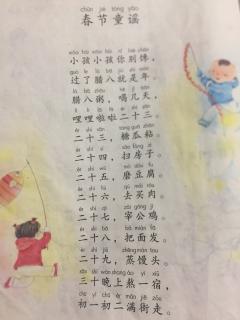 chūn jié tóng yáo
春节童谣
xiǎo hái xiǎo hái nǐ bié chán
小孩小孩你别馋，
guò le là bā jiù shì nián
过了腊八就是年。
là bā zhōu hē jǐ tiān
腊八粥，喝几天，
lī li lā lā èr shí sān
哩哩啦啦二十三。
èr shí sān táng guā zhān
二十三，糖瓜粘。
èr shí sì sǎo fáng zi
二十四，扫房子。
èr shí wǔ mò dòu fu
二十五，磨豆腐。
èr shí liù qù mǎi ròu
二十六，去买肉。
èr shí qī zǎi gōng jī
二十七，宰公鸡。
èr shí bā bǎ miàn fā
二十八，把面发。
èr shí jiǔ zhēng mán tou
二十九，蒸馒头
sān shí wǎn shang áo yì xiǔ
三十晚上熬一宿，
chū yī chū èr mǎn jiē zǒu
初一初二满街走。